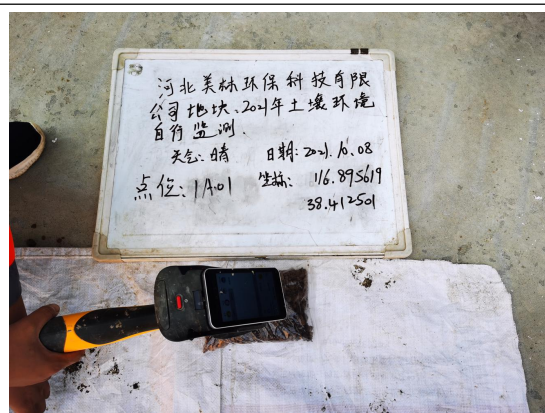 河北美林环保科技有限
公司地块、2021年土壤环境
自行监测.
天气:晴 日期:2021.10.08
点位:1A01 坐标: 116.895619
38.412501